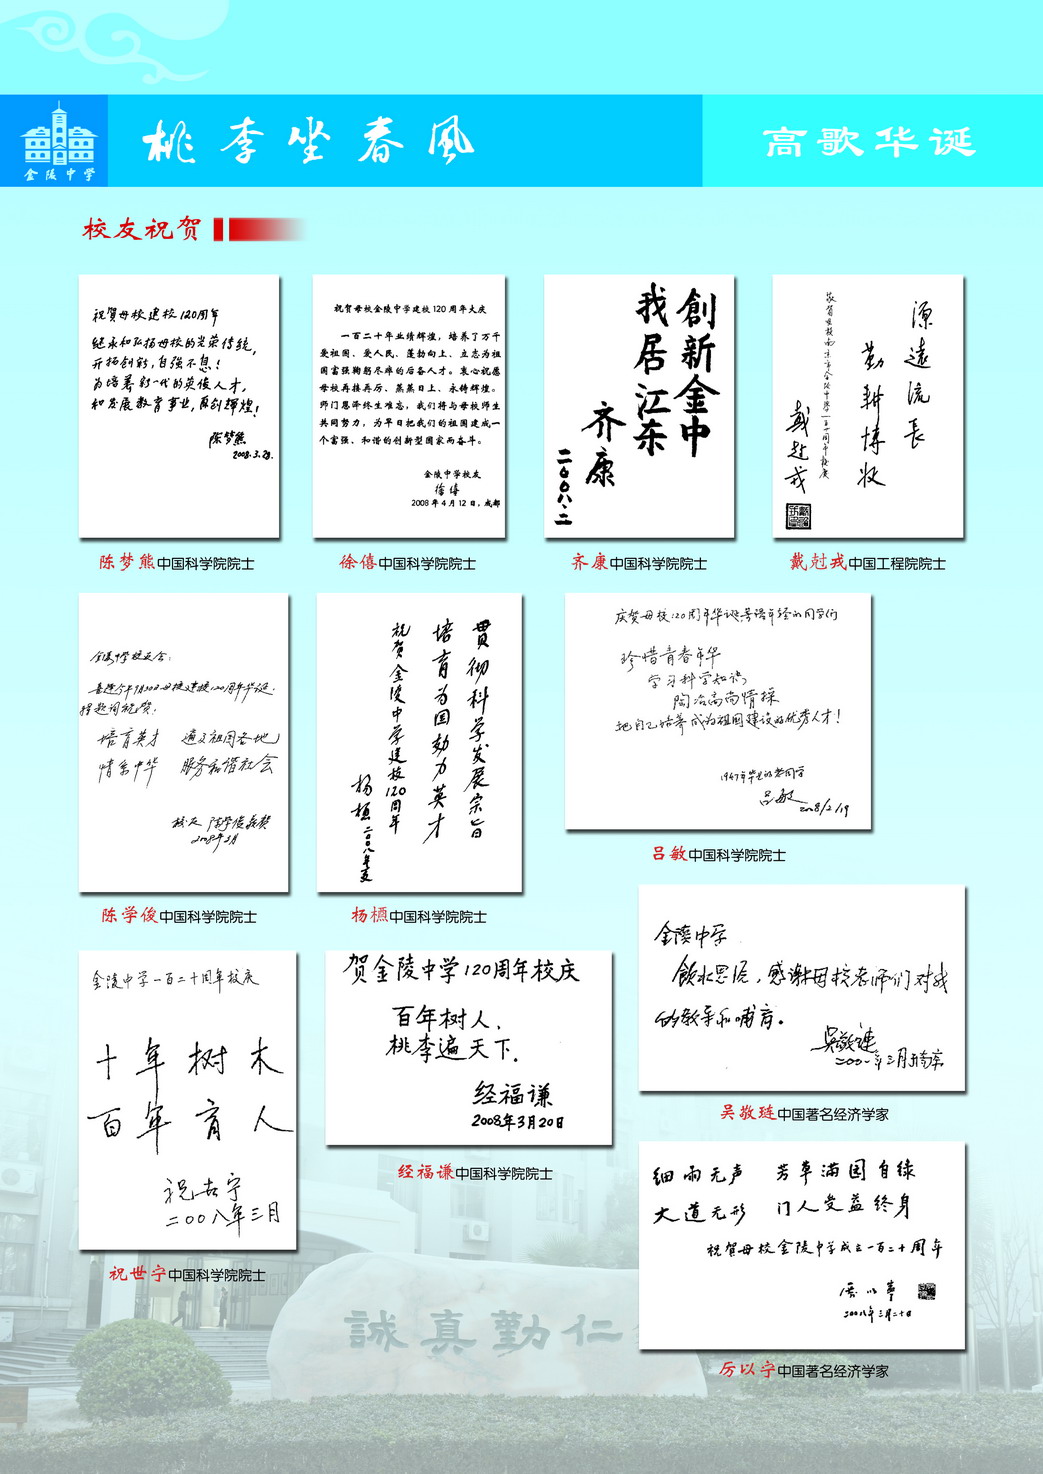 金陵中学
桃李坐春风
高歌华诞
校友祝贺
祝贺母校建校120周年
继承和弘扬母校的光荣传统,
开拓创新,自强不息!
为培养新一代的英俊人才,
和发展教育事业,再创辉煌!
陈梦熊
2008.3.28.
陈梦熊中国科学院院士
祝贺母校金陵中学建校120周年大庆
一百二十年业绩辉煌,培养了万千
爱祖国、爱人民、蓬勃向上、立志为祖
国富强鞠躬尽瘁的后备人才。衷心祝愿
母校再接再厉、蒸蒸日上、永铸辉煌。
师门恩泽终生难忘,我们将与母校师生
共同努力,为早日把我们的祖国建成一
个富强、和谐的创新型国家而奋斗。
金陵中学校友
徐僖
2008年4月12日,成都
徐僖中国科学院院士
創新金中
我居江东
齐康
二〇〇八.二
齐康中国科学院院士
源遠流長
勤耕博收
戴尅戎
戴尅戎中国工程院院士
金陵中学校友会:
培育英才 遍及祖国各地
情系中华 服务和谐社会
2008年3月
陈学俊中国科学院院士
贯彻科学发展宗旨
培育为国効力英才
祝贺金陵中学建校120周年
杨槱 二〇〇八年
杨槱中国科学院院士
珍惜青春年华
学习科学知识
陶冶高尚情操
把自己培养成为祖国建设的优秀人才!
1947年毕业的老同学
吕敏
2008/2/19
吕敏中国科学院院士
金陵中学一百二十周年校庆
十年树木
百年育人
祝世宁
二〇〇八年三月
祝世宁中国科学院院士
贺金陵中学120周年校庆
百年树人,
桃李遍天下.
经福谦
2008年3月20日
经福谦中国科学院院士
金陵中学
飲水思源,感谢母校老师们对我
的教导和哺育。
吴敬琏
吴敬琏中国著名经济学家
细雨无声 芳草满园自绿
大道无形 门人受益终身
祝贺母校金陵中学成立一百二十周年
厉以宁
二〇〇八年三月二十日
厉以宁中国著名经济学家
誠真勤仁